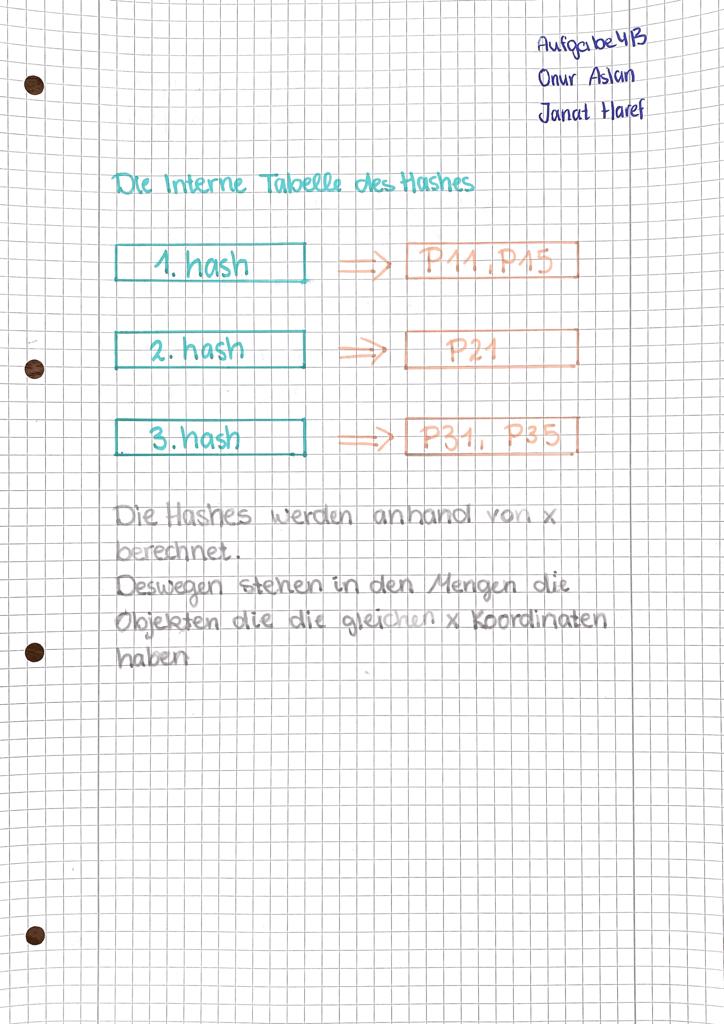 Aufgabe 4B
Onur Aslan
Janat Haref
Die Interne Tabelle des Hashes
1. hash ⇒ P11, P15
2. hash ⇒ P21
3. hash ⇒ P31, P35
Die Hashes werden anhand von x
berechnet.
Deswegen stehen in den Mengen die
Objekten die die gleichen x Koordinaten
haben